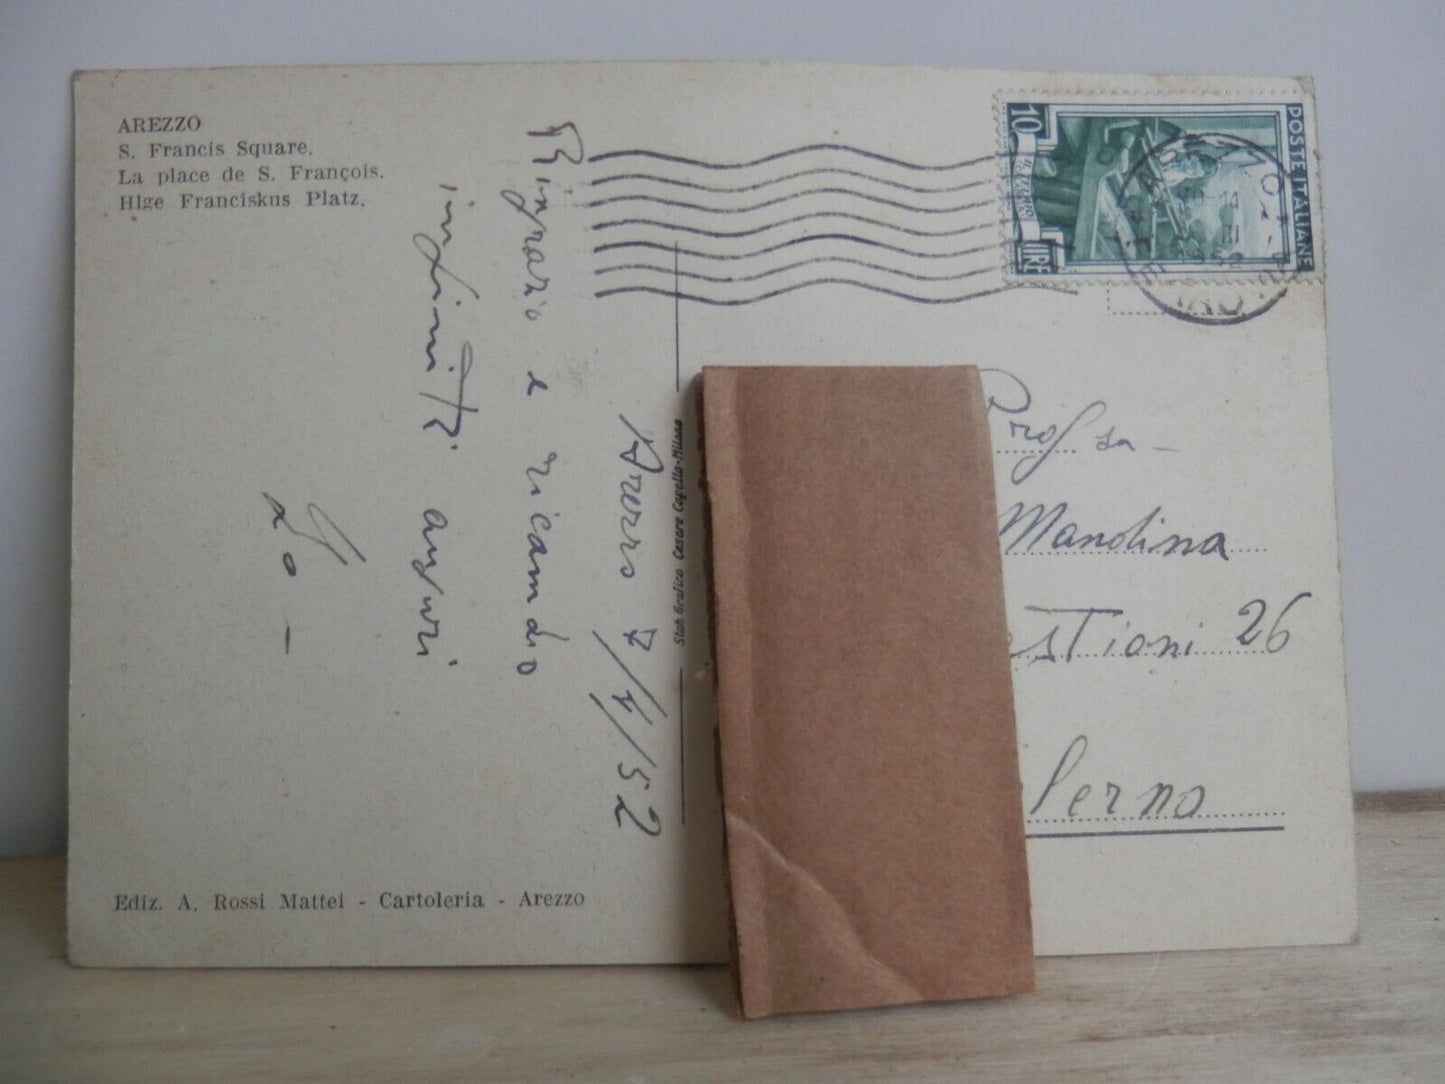 AREZZO
S. Francis Square.
La place de S. François.
Hlge Franciskus Platz.
Arezzo 7/4/52
Ringrazio e ricambio
infiniti auguri
Ediz. A. Rossi Mattei - Cartoleria - Arezzo
Stab. Grafico Cesare Capello-Milano
POSTE ITALIANE
10
LIRE
1952
Prof ssa -
Mandlina
estioni 26
lerno